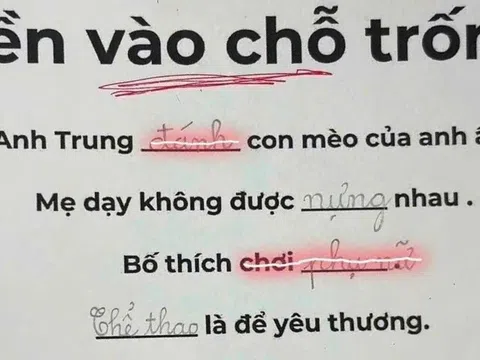 ền vào chỗ trốn
Anh Trung đánh con mèo của anh ấ
Mẹ dạy không được nựng nhau .
Bố thích chơi phụ nữ
Thể thao là để yêu thương.